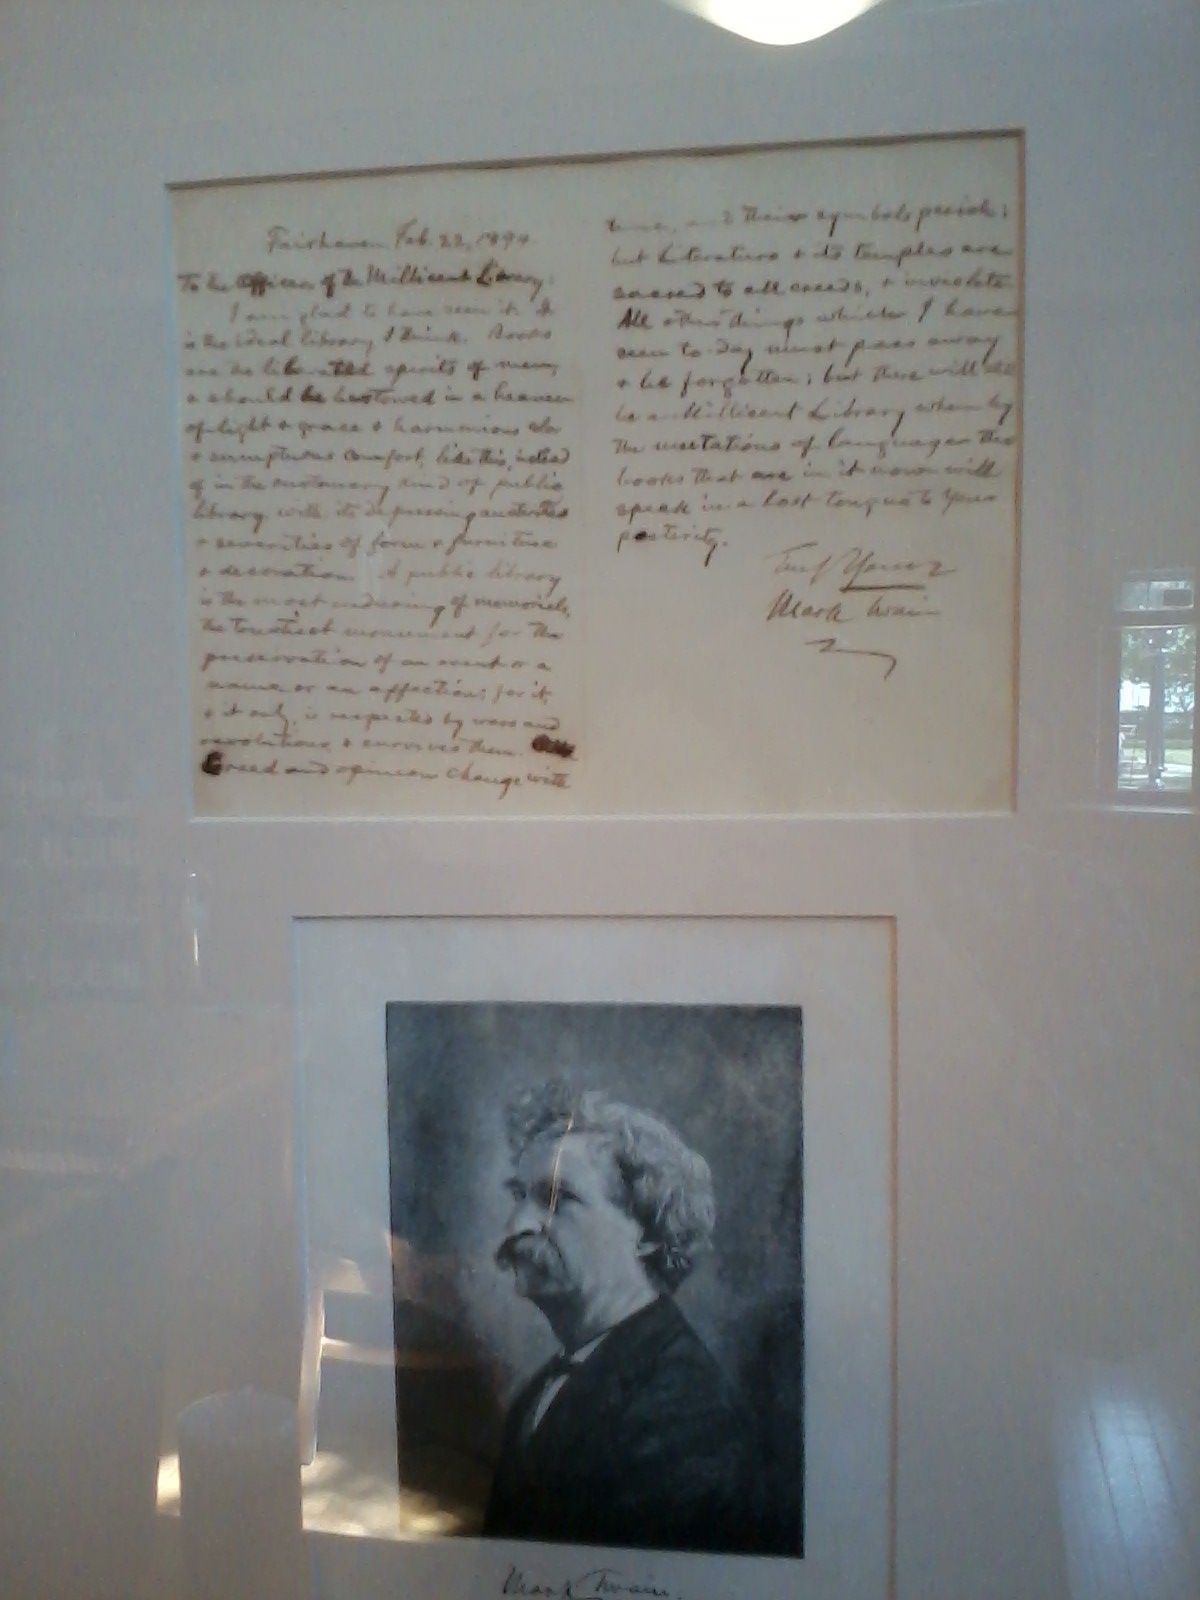 Fairhaven Feb. 22, 1894.
To the Officers of the Millicent Library:
I am glad to have seen it. It
is the ideal library, I think. Books
are the liberated spirits of men,
& should be bestowed in a heaven
of light & grace & harmonious color
& sumptuous comfort, like this, instead
of in the customary kind of public
library, with its depressing austerities
& severities of form & furniture
& decoration. A public library
is the most enduring of memorials,
the trustiest monument for the
preservation of an event or a
name or an affection; for it,
& it only, is respected by wars and
revolutions, & survives them.
Creed and opinion change with
time, and their symbols perish;
but Literature & its temples are
sacred to all creeds, & inviolate.
All other things which I have
seen to-day must pass away
& be forgotten; but there will still
be a Millicent Library when by
the mutations of language the
books that are in it now will
speak in a lost tongue to your
posterity.
Truly Yours
Mark Twain
Mark Twain.